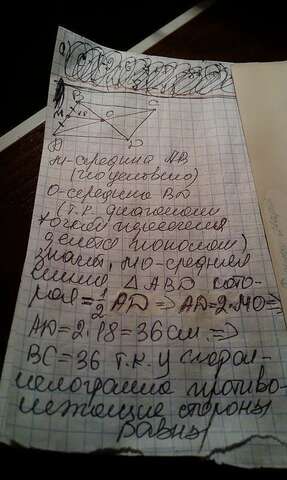 B
C
M
18
O
A
D
M-середина AB
(по условию)
O-середина BD
(т.к. диагонали
точкой пересечения
делятся пополам)
значит, MO-средняя
линия △ ABD кото-
рая = 1/2 AD => AD=2·MO=>
AD=2·18=36см.=>
BC=36 т.к. у
противо-
лежащие стороны
равны